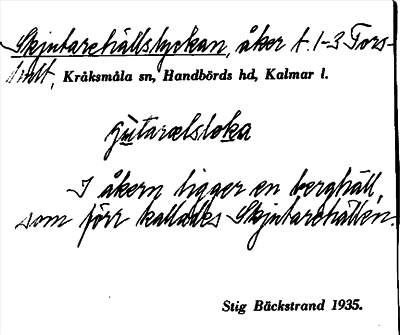 Skjutarehällslyckan, åker t. 1-3 Tors-
hult, Kråksmåla sn, Handbörds hd, Kalmar l.
ʃutarælsloka
I åkern ligger en berghäll,
som förr kallades Skjutarehällen.
Stig Bäckstrand 1935.